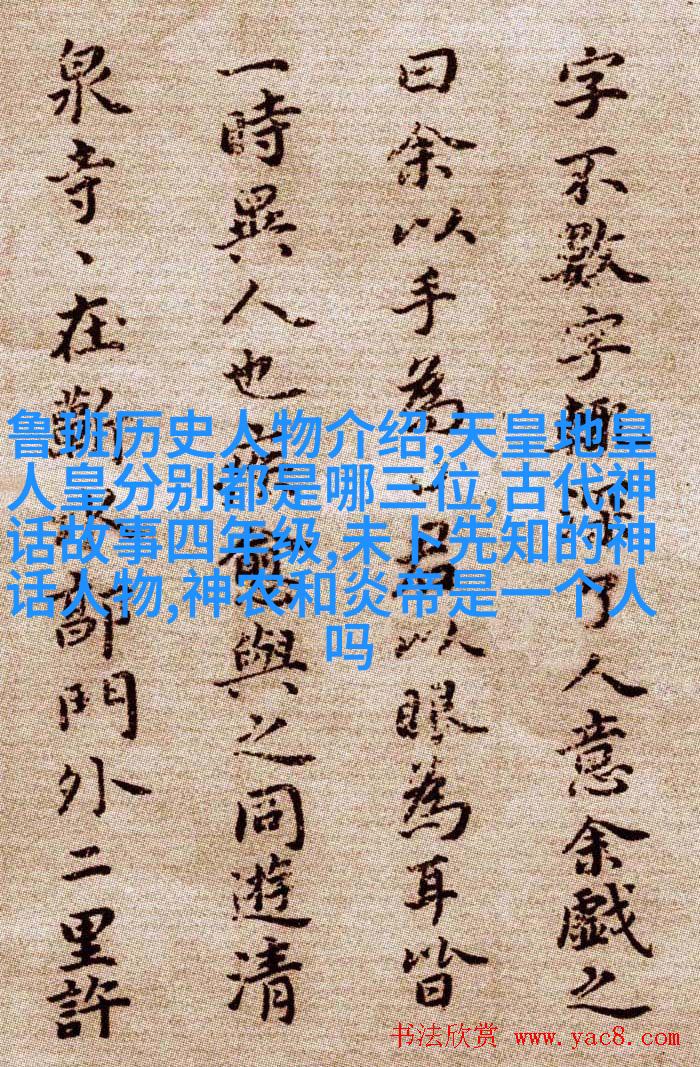 字不數字了人意余戲之
曰余以手為君以眼為耳皆
一時異人也疾愈與之同遊清
泉寺、在蘄水郭門外二里許
鲁班历史人物介绍,天皇地皇
人皇分别都是哪三位,古代神
话故事四年级,未卜先知的神
话人物,神农和炎帝是一个人
吗
书法欣赏 www.yac8.com